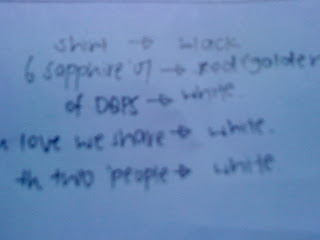 shirt → black
6 sapphire 07 → red/golden
of DBPS → white.
love we share → white.
th two people → white